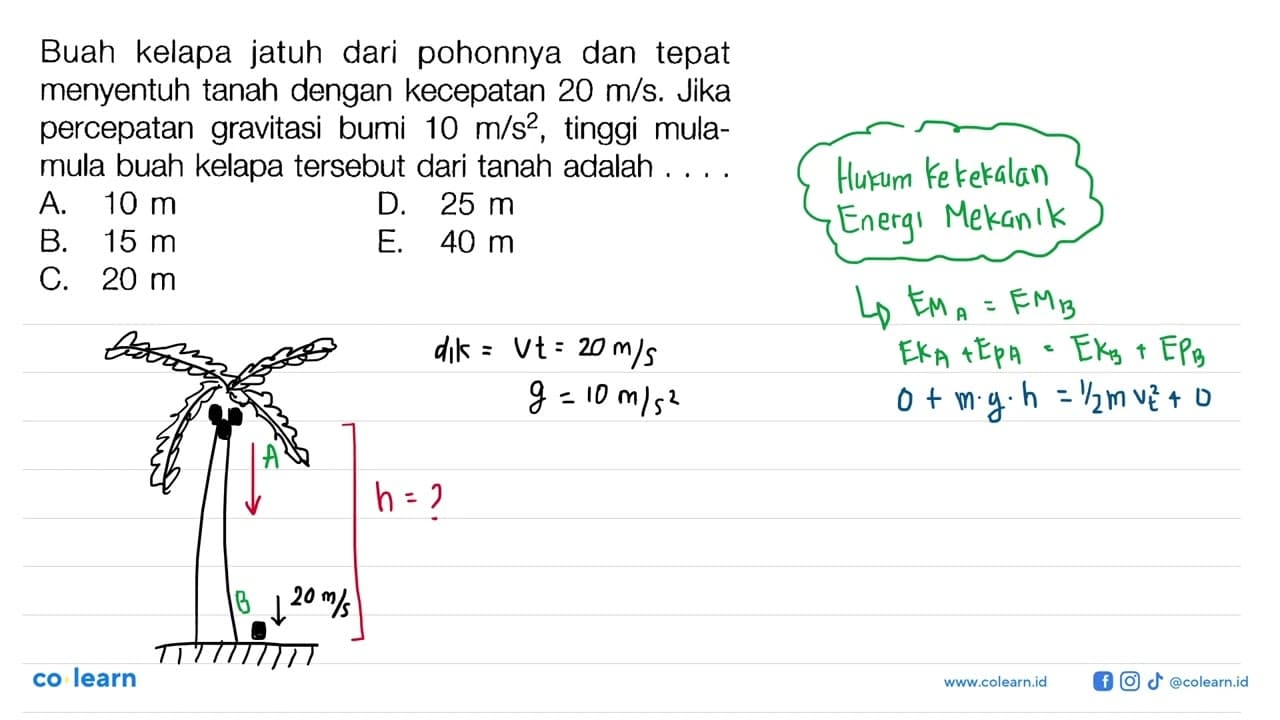 Buah kelapa jatuh dari pohonnya dan tepat
menyentuh tanah dengan kecepatan 20 m/s. Jika
percepatan gravitasi bumi 10 m/s², tinggi mula-
mula buah kelapa tersebut dari tanah adalah . . . .
A. 10 m D. 25 m
B. 15 m E. 40 m
C. 20 m
Hukum Kekekalan
Energi Mekanik
↳ EM_A = EM_B
Ek_A + Ep_A = Ek_B + Ep_B
0 + m·g·h = ½ m v_t² + 0
dik = Vt = 20 m/s
g = 10 m/s²
A
h = ?
B 20 m/s
co learn
www.colearn.id @colearn.id